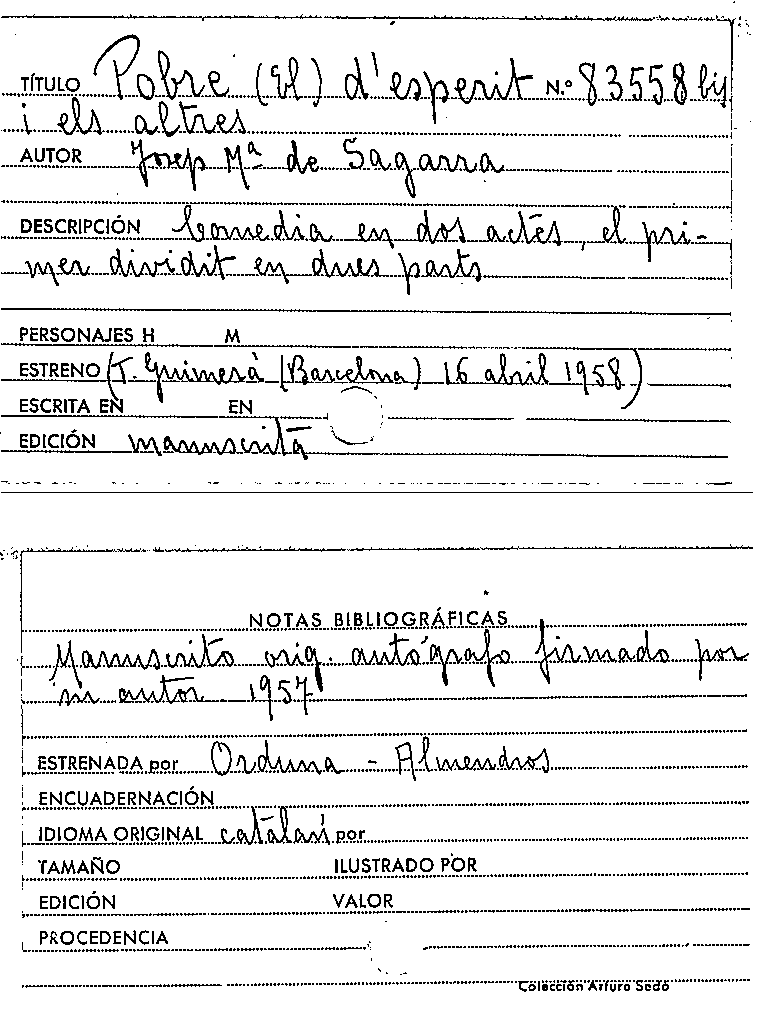 TÍTULO Pobre (El) d'esperit N.º 83558 bis
i els altres
AUTOR Josep Mª de Sagarra
DESCRIPCIÓN Comedia en dos actes, el pri-
mer dividit en dues parts
PERSONAJES H M
ESTRENO (T. Guimerà (Barcelona) 16 abril 1958)
ESCRITA EN EN
EDICIÓN manuscrita
NOTAS BIBLIOGRÁFICAS
Manuscrito orig. autógrafo firmado por
su autor 1957
ESTRENADA por Orduna - Almendros
ENCUADERNACIÓN
IDIOMA ORIGINAL catalán por
TAMAÑO ILUSTRADO POR
EDICIÓN VALOR
PROCEDENCIA
Colección Arturo Sedó